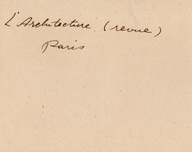 L'Architecture (revue)
Paris